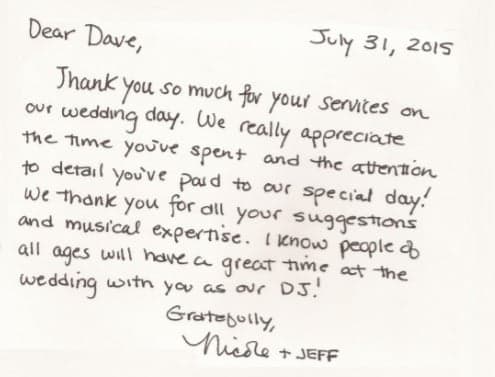 Dear Dave,
July 31, 2015
Thank you so much for your services on
our wedding day. We really appreciate
the time you've spent and the attention
to detail you've paid to our special day!
We thank you for all your suggestions
and musical expertise. I know people of
all ages will have a great time at the
wedding with you as our DJ!
Gratefully,
Nicole + JEFF